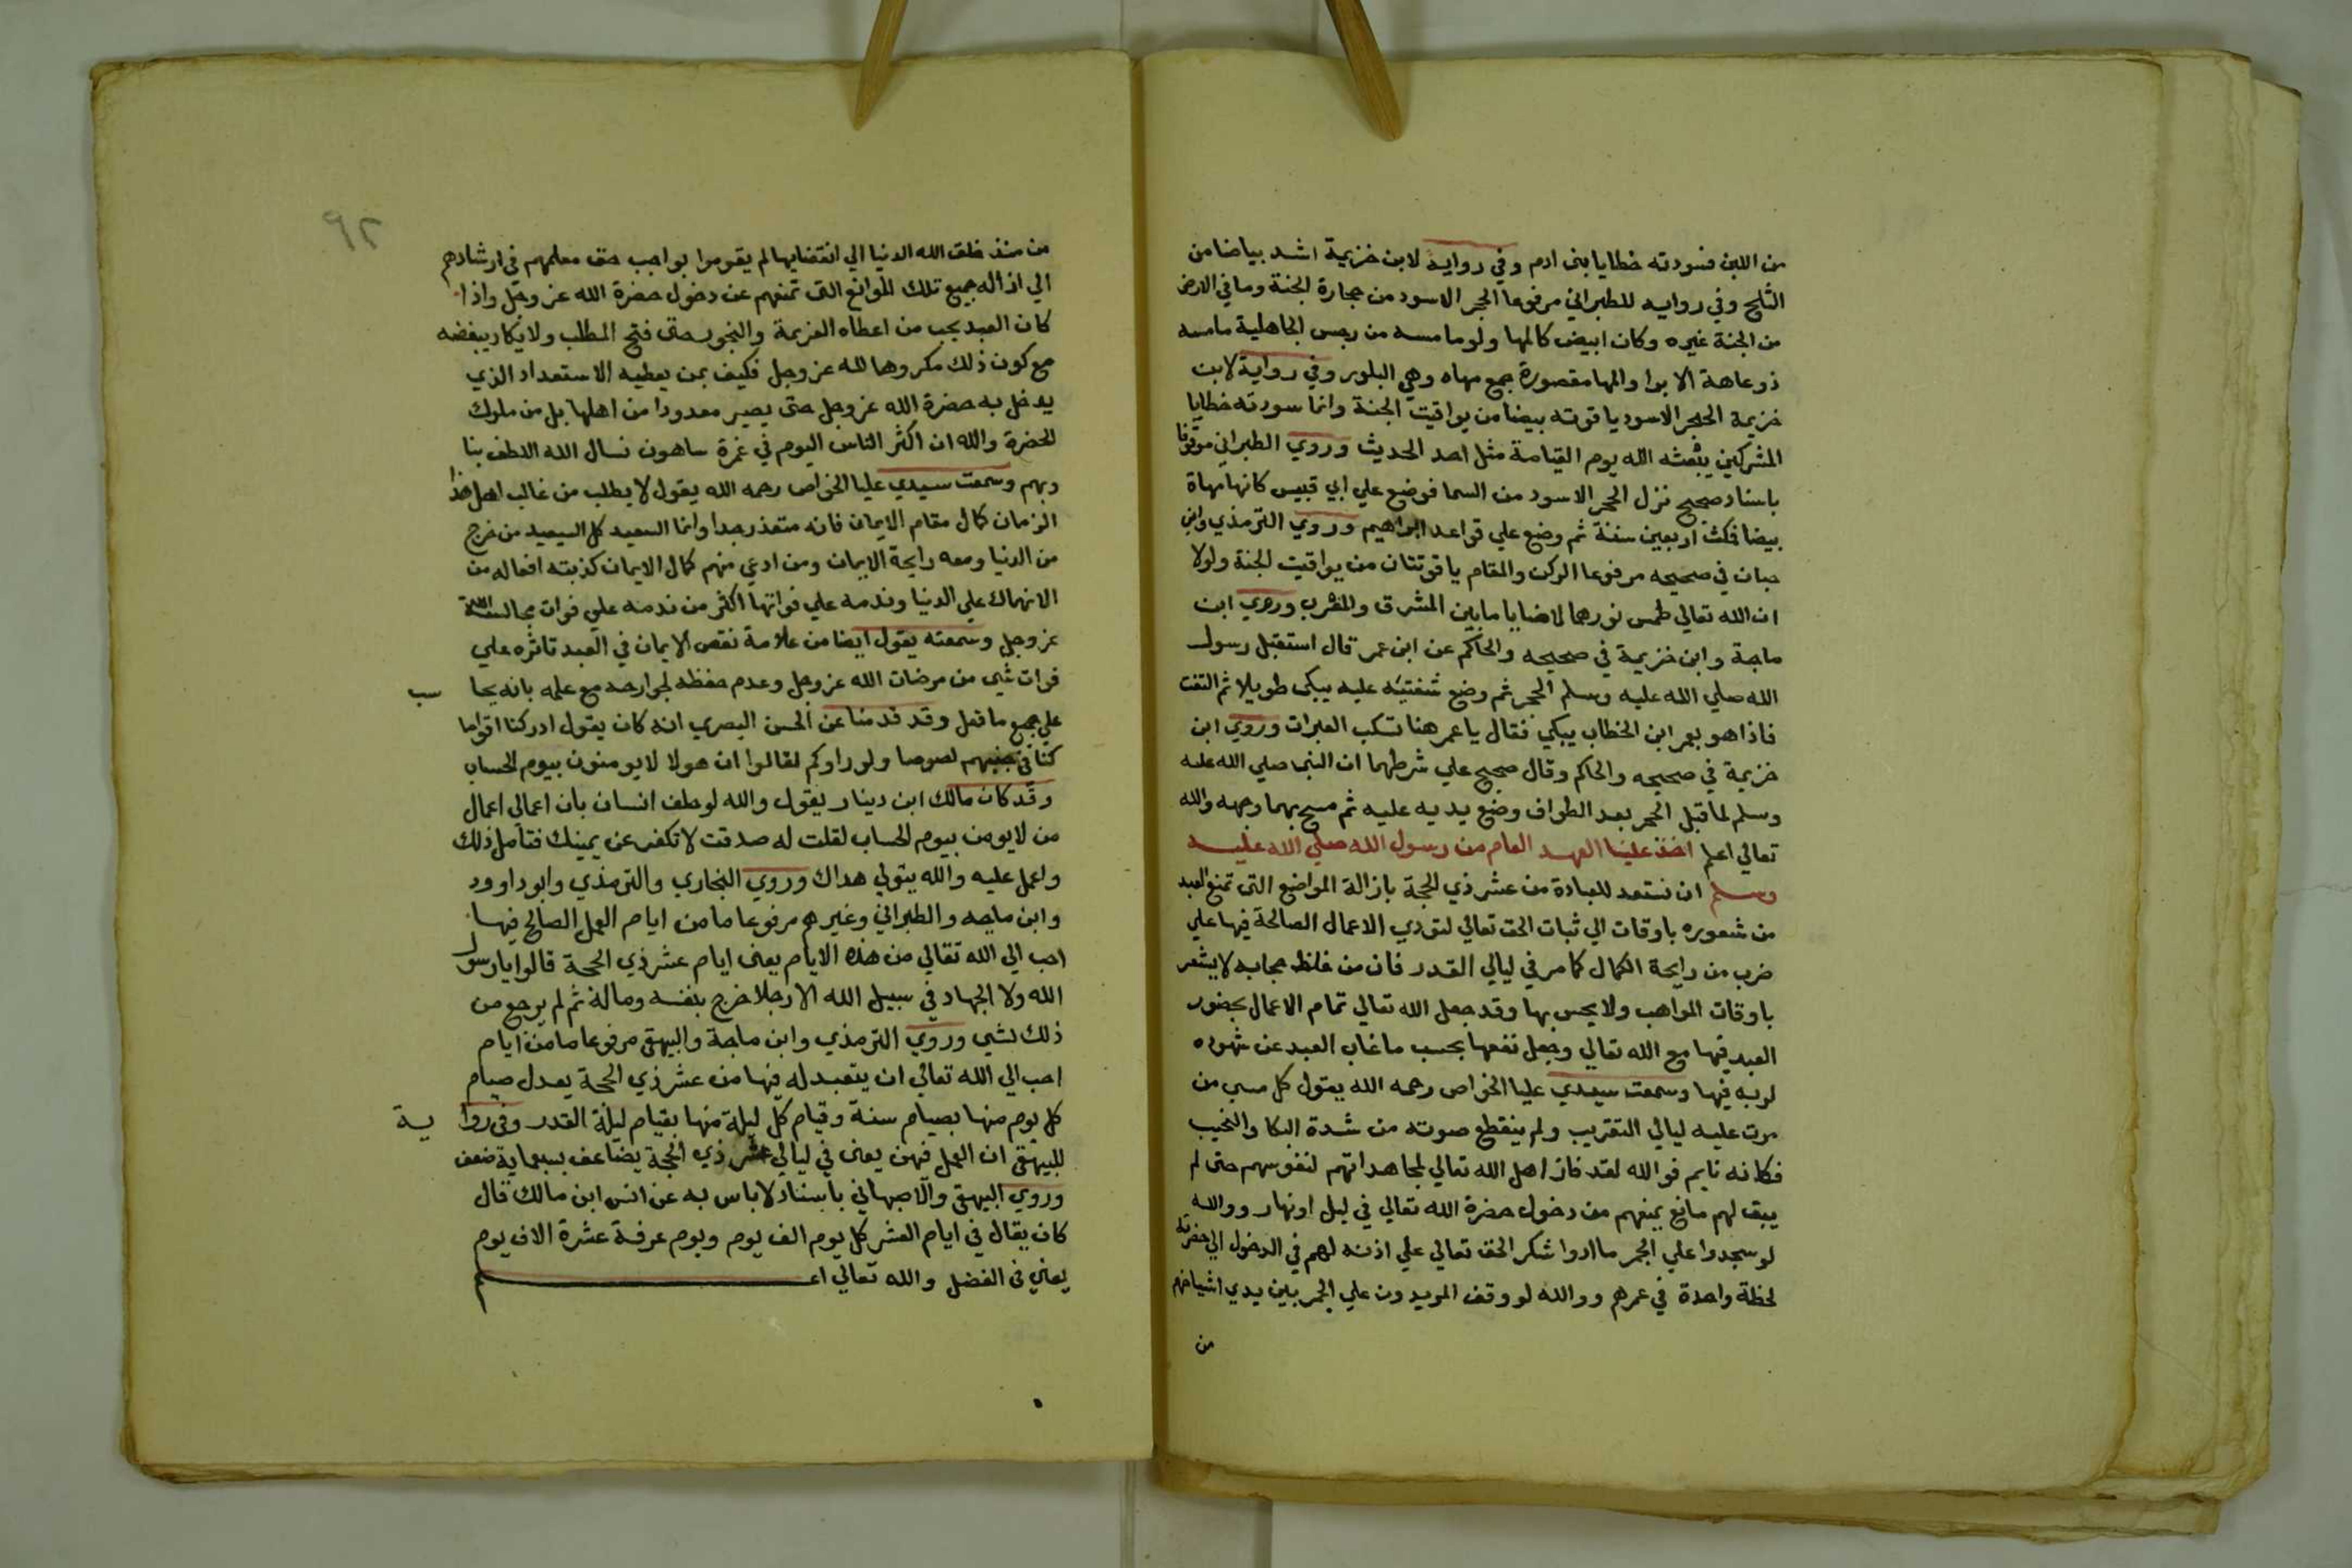 من اللبن فسودته خطايا بنى ادم وفي رواية لابن خزيمة اشد بياضا من
الثلج وفي رواية للطبراني مرفوعا الحجر الاسود من حجارة الجنة وما في الارض
من الجنة غيره وكان ابيض كالمها ولو ما مسه من رجس الجاهلية ما مسه
ذو عاهة الا برا والمها مقصورة جمع مهاه وهي البلور وفي رواية لابن
خزيمة الحجر الاسود ياقوته بيضا من يواقيت الجنة وانما سودته خطايا
المشركين يبعثه الله يوم القيامة مثل احد الحديث وروي الطبراني موقوفا
باسناد صحيح نزل الحجر الاسود من السما فوضع علي ابي قبيس كانها مهاة
بيضا فمكث اربعين سنة ثم وضع علي قواعد ابراهيم وروي الترمذي وابن
حبان في صحيحه مرفوعا الركن والمقام ياقوتتان من يواقيت الجنة ولولا
ان الله تعالي طمس نورهما لاضايا ما بين المشرق والمغرب وروي ابن
ماجة وابن خزيمة في صحيحه والحاكم عن ابن عمر قال استقبل رسول
الله صلي الله عليه وسلم الحجر ثم وضع شفتيه عليه يبكى طويلا ثم التفت
فاذا هو بعمر ابن الخطاب يبكي فقال يا عمر هنا تسكب العبرات وروي ابن
خزيمة في صحيحه والحاكم وقال صحيح علي شرطهما ان النبى صلي الله عليه
وسلم لما قبل الحجر بعد الطواف وضع يديه عليه ثم مسح بهما وجهه والله
تعالي اعلم اخذ علينا العهد العام من رسول الله صلي الله عليه
وسلم ان نستعد للعبادة من عشر ذي الحجة بازالة المواضع التى تمنع العبد
من شعوره باوقات الي ثبات الحق تعالي لتودي الاعمال الصالحة فيها علي
ضرب من رايحة الكمال كما مر في ليالي القدر فان من غلظ حجابه لا يشعر
باوقات المواهب ولا يحس بها وقد جعل الله تعالي تمام الاعمال بحضور
العبد فيها مع الله تعالي وجعل نفعها بحسب ما غاب العبد عن شهوده
لربه فيها وسمعت سيدي عليا الخواص رحمه الله يقول كل مسي من
مرت عليه ليالي التقريب ولم ينقطع صوته من شدة البكا والنحيب
فكانه نايم فوالله لقد فاز اهل الله تعالي لمجاهداتهم لنفوسهم حتى لم
يبق لهم مانع يمنعهم من دخول حضرة الله تعالي في ليل او نهار ووالله
لو سجدوا علي الجمر ما ادوا شكر الحق تعالي علي اذنه لهم في الدخول الي حضرته
لحظة واحدة في عمرهم ووالله لو وقف المريدون علي الجمر بين يدي اشياخهم
من
٩٢
من منذ خلق الله الدنيا الي انقضايها لم يقوموا بواجب حق معلمهم في ارشادهم
الي ازاله جميع تلك الموانع التى تمنعهم عن دخول حضرة الله عز وجل واذا
كان العبد يحب من اعطاه العزيمة والبخور حتى فتح المطلب ولا يكاد يبغضه
مع كون ذلك مكروها لله عز وجل فكيف بمن يعطيه الاستعداد الذي
يدخل به حضرة الله عز وجل حتى يصير معدودا من اهلها بل من ملوك
الحضرة والله ان اكثر الناس اليوم في غمرة ساهون نسال الله اللطف بنا
وبهم وسمعت سيدي عليا الخواص رحمه الله يقول لا يطلب من غالب اهل هذا
الزمان كمال مقام الايمان فانه متعذر جدا وانما السعيد كل السعيد من خرج
من الدنيا ومعه رايحة الايمان ومن ادعي منهم كمال الايمان كذبته افعاله من
الانهماك علي الدنيا وندمه علي فواتها اكثر من ندمه علي فوات مجالسة الله
عز وجل وسمعته يقول ايضا من علامة نقص الايمان في العبد تاثره علي
فوات شي من مرضات الله عز وجل وعدم حفظه لجوارحه مع علمه بانه يحا سب
علي جميع ما فعل وقد قدمنا عن الحسن البصري انه كان يقول ادركنا اقواما
كنا في جنبهم لصوصا ولو راوكم لقالوا ان هولا لا يومنون بيوم الحساب
وقد كان مالك ابن دينار يقول والله لو حلف انسان بان اعمالي اعمال
من لا يومن بيوم الحساب لقلت له صدقت لا تكفر عن يمينك فتامل ذلك
واعمل عليه والله يتولي هداك وروي البخاري والترمذي وابو داوود
وابن ماجه والطبراني وغيرهم مرفوعا ما من ايام العمل الصالح فيها
احب الي الله تعالي من هذه الايام يعنى ايام عشر ذي الحجة قالوا يا رسول
الله ولا الجهاد في سبيل الله الا رجلا خرج بنفسه وماله ثم لم يرجع من
ذلك بشي وروي الترمذي وابن ماجة والبيهقى مرفوعا ما من ايام
احب الي الله تعالي ان يتعبد له فيها من عشر ذي الحجة يعدل صيام
كل يوم منها بصيام سنة وقيام كل ليلة منها بقيام ليلة القدر وفى روا ية
للبيهقى ان العمل فيهن يعنى في ليالي عشر ذي الحجة يضاعف بسبعماية ضعف
وروي البيهقى والاصبهاني باسناد لا باس به عن انس ابن مالك قال
كان يقال في ايام العشر كل يوم الف يوم ويوم عرفة عشرة الاف يوم
يعني فى الفضل والله تعالي اعلم